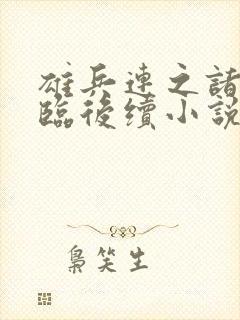 雄兵連之諸
臨後續小說
梟笑生